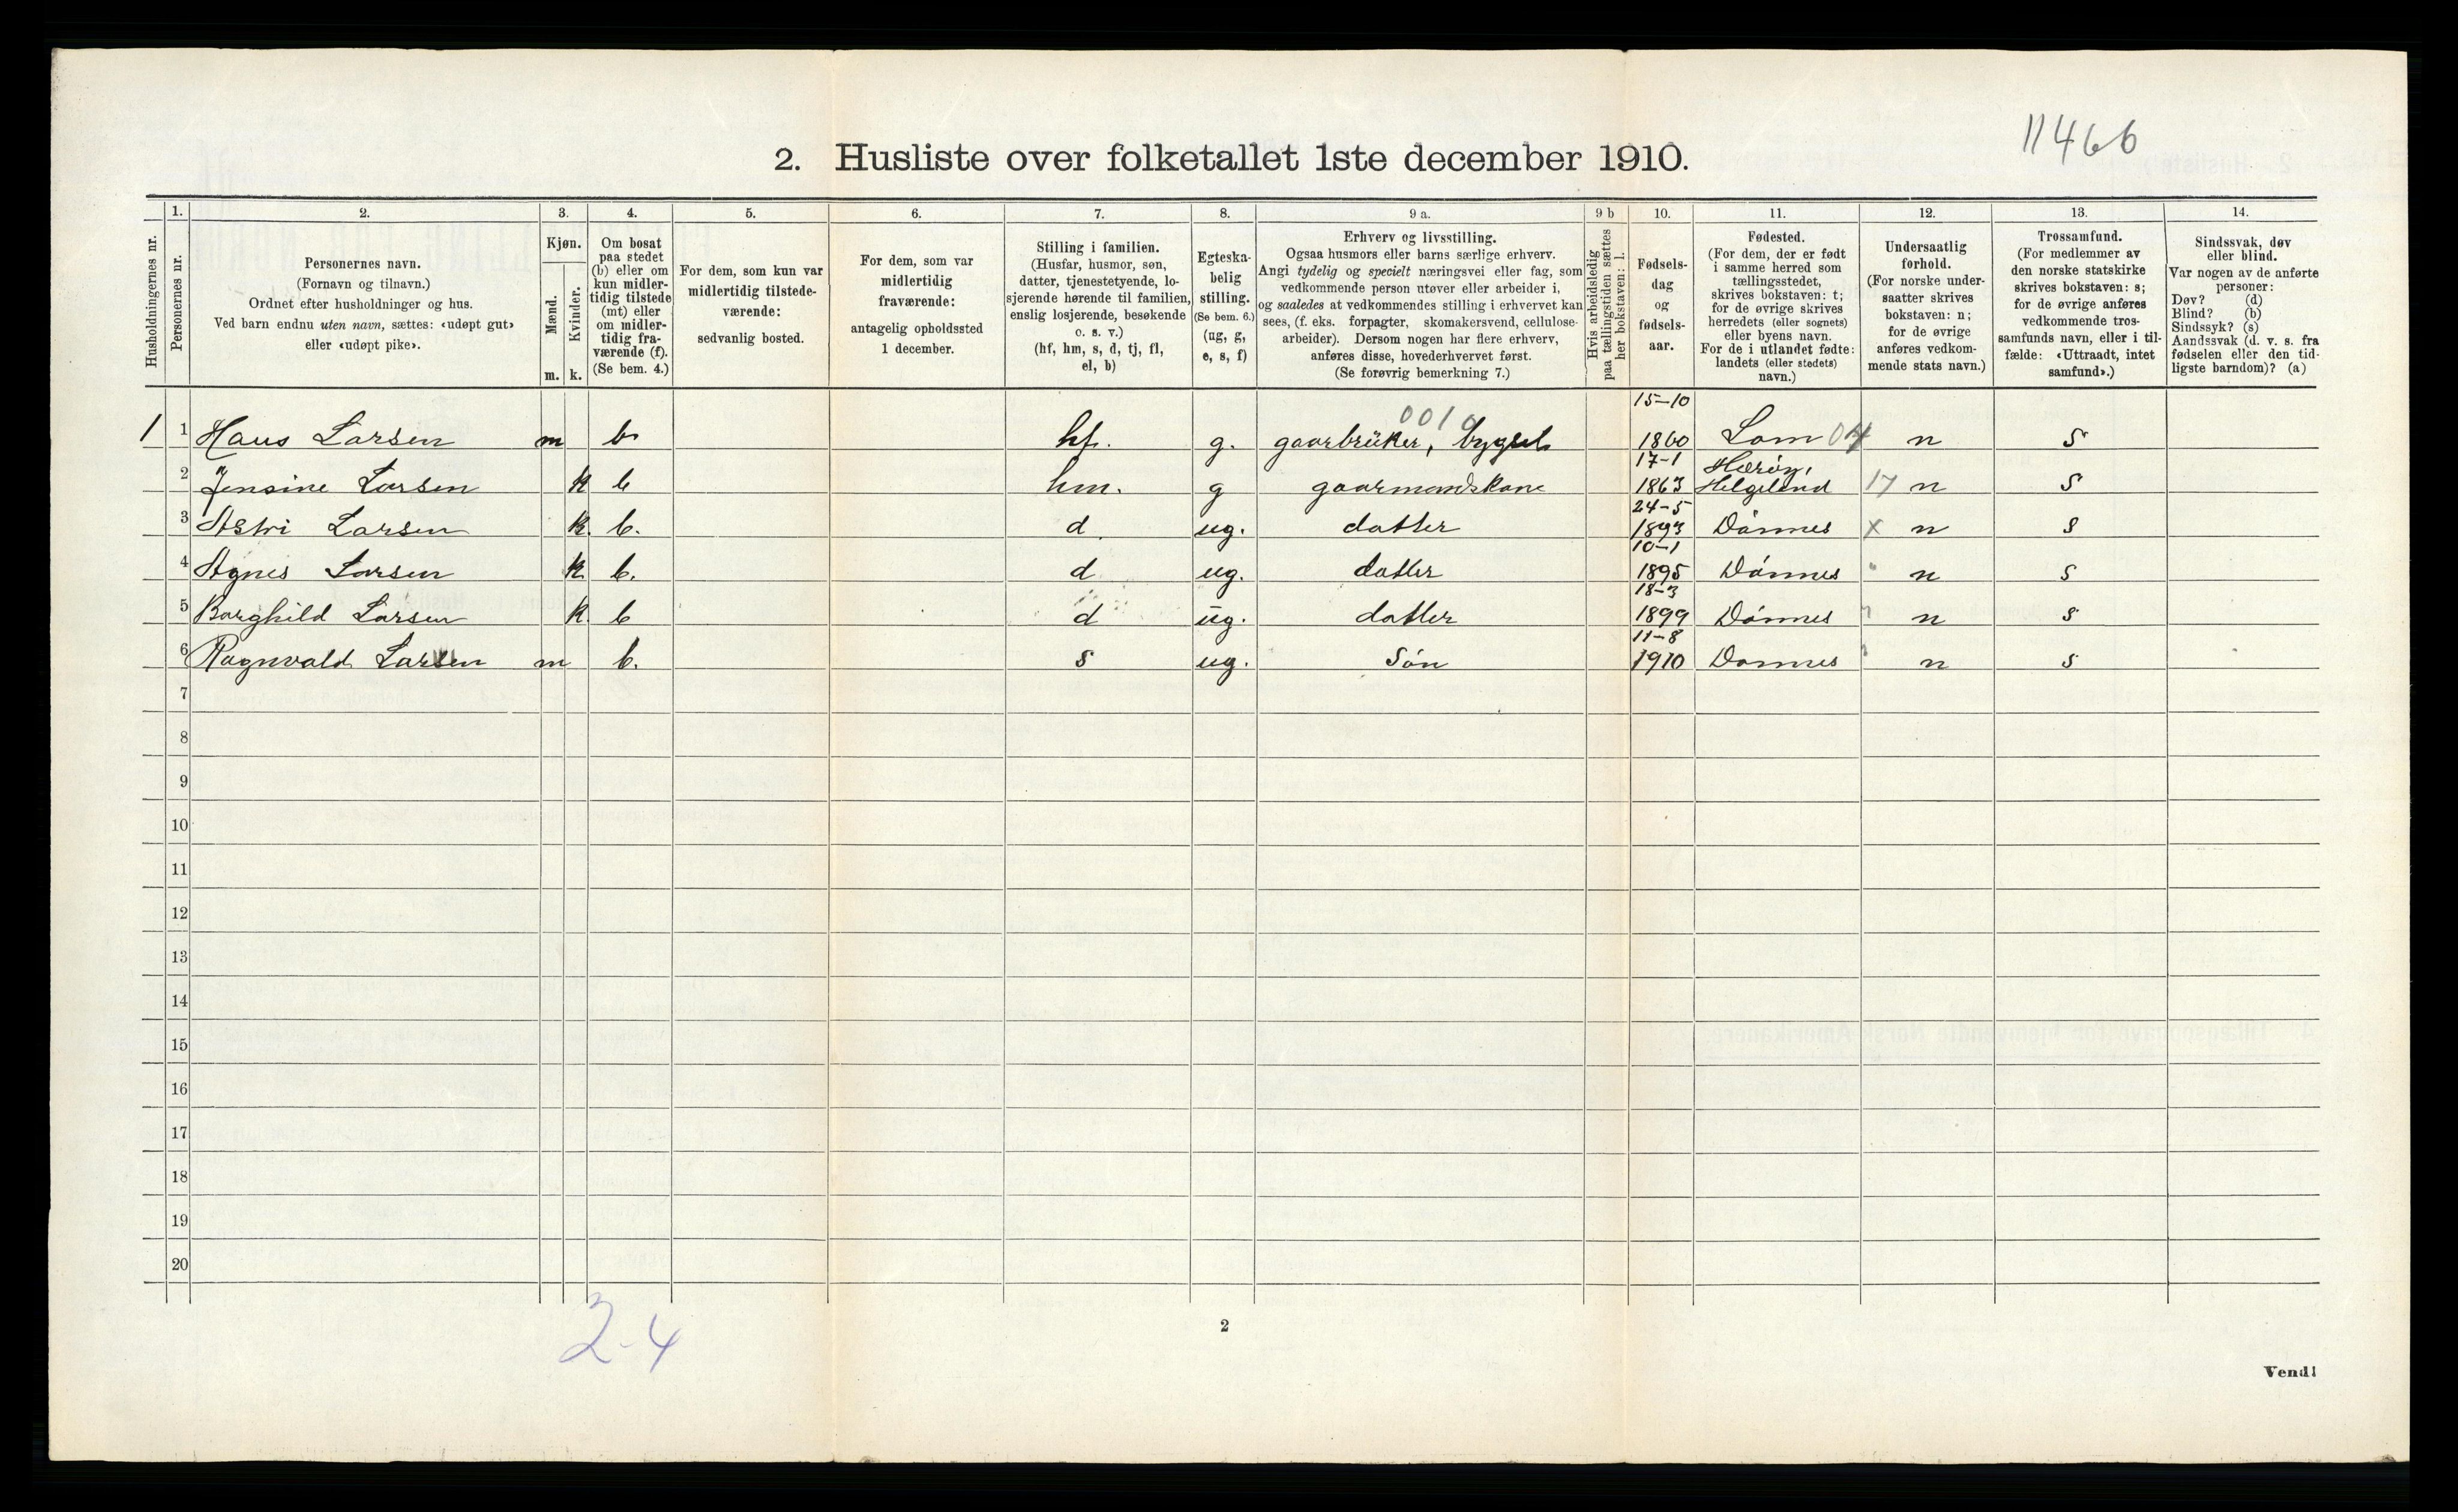 11466
2. Husliste over folketallet 1ste december 1910.
Husholdningernes nr.
1. Personernes nr.
2. Personernes navn.
(Fornavn og tilnavn.)
Ordnet efter husholdninger og hus.
Ved barn endnu uten navn, sættes: «udøpt gut»
eller «udøpt pike».
3. Kjøn.
Mænd. m.
Kvinder. k.
4. Om bosat
paa stedet
(b) eller om
kun midler-
tidig tilstede
(mt) eller
om midler-
tidig fra-
værende (f).
(Se bem. 4.)
5. For dem, som kun var
midlertidig tilstede-
værende:
sedvanlig bosted.
6. For dem, som var
midlertidig
fraværende:
antagelig opholdssted
1 december.
7. Stilling i familien.
(Husfar, husmor, søn,
datter, tjenestetyende, lo-
sjerende hørende til familien,
enslig losjerende, besøkende
o. s. v.)
(hf, hm, s, d, tj, fl,
el, b)
8. Egteska-
belig
stilling.
(Se bem. 6.)
(ug, g,
e, s, f)
9 a. Erhverv og livsstilling.
Ogsaa husmors eller barns særlige erhverv.
Angi tydelig og specielt næringsvei eller fag, som
vedkommende person utøver eller arbeider i,
og saaledes at vedkommendes stilling i erhvervet kan
sees, (f. eks. forpagter, skomakersvend, cellulose-
arbeider). Dersom nogen har flere erhverv,
anføres disse, hovederhvervet først.
(Se forøvrig bemerkning 7.)
9 b Hvis arbeidsledig
paa tællingstiden sættes
her bokstaven: l.
10. Fødsels-
dag
og
fødsels-
aar.
11. Fødested.
(For dem, der er født
i samme herred som
tællingsstedet,
skrives bokstaven: t;
for de øvrige skrives
herredets (eller sognets)
eller byens navn.
For de i utlandet fødte:
landets (eller stedets)
navn.)
12. Undersaatlig
forhold.
(For norske under-
saatter skrives
bokstaven: n;
for de øvrige
anføres vedkom-
mende stats navn.)
13. Trossamfund.
(For medlemmer av
den norske statskirke
skrives bokstaven: s;
for de øvrige anføres
vedkommende tros-
samfunds navn, eller i til-
fælde: «Uttraadt, intet
samfund».)
14. Sindssvak, døv
eller blind.
Var nogen av de anførte
personer:
Døv? (d)
Blind? (b)
Sindssyk? (s)
Aandssvak (d. v. s. fra
fødselen eller den tid-
ligste barndom)? (a)
1 1 Hans Larsen m b. hf. g. gaarbrüker, bygsel 0010 15-10 1860 Lom 04 n s
2 Jensine Larsen k b hm. g gaarmandskone 17-1 1863 Herøy, Helgeland 17 n s
3 Astri Larsen k. b. d. ug. datter 24-5 1893 Dönnes x n s
4 Agnes Larsen k. b. d ug. datter 10-1 1895 Dönnes " n s
5 Borghild Larsen k. b d ug. datter 18-3 1899 Dönnes " n s
6 Ragnvald Larsen m b. s ug. Sön 11-8 1910 Donnes " n s
7
8
9
10
11
12
13
14
15
16
17
18
19
20
2-4
2
Vend!